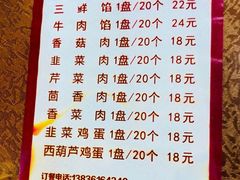 三鲜馅 1盘/20个 22元
牛肉馅 1盘/20个 24元
香菇肉 1盘/20个 18元
韭菜肉 1盘/20个 18元
芹菜肉 1盘/20个 18元
茴香肉 1盘/20个 18元
香菜肉 1盘/20个 18元
韭菜鸡蛋 1盘/20个 18元
西葫芦鸡蛋 1盘/20个 18元
订餐电话: